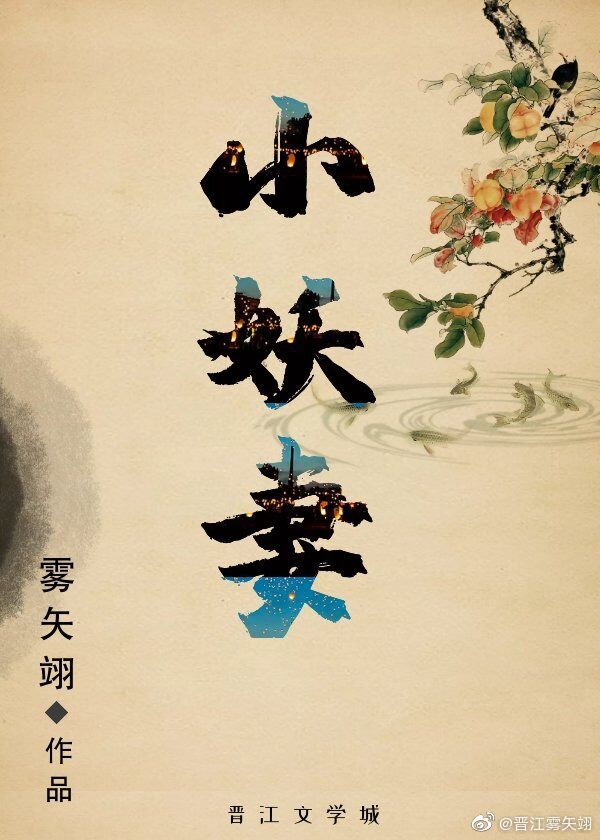 小妖妻
雾矢翊◆作品
晋江文学城
@晋江雾矢翊